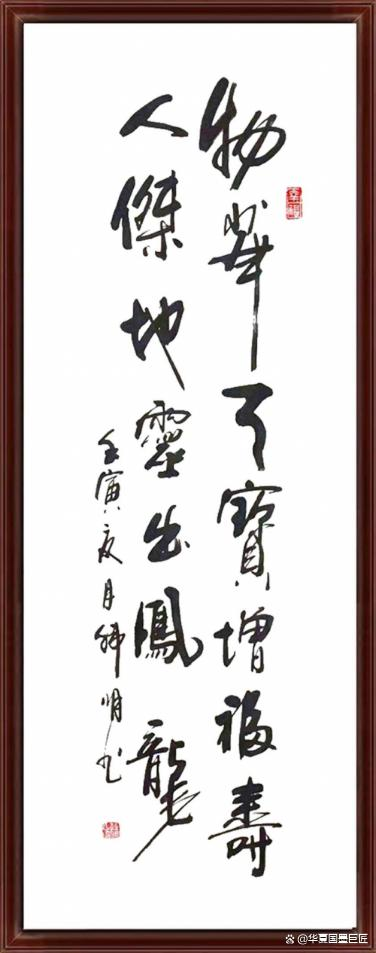 物華天寶增福壽
人傑地靈出鳳龍
壬寅夏月明书
@华夏国墨巨匠